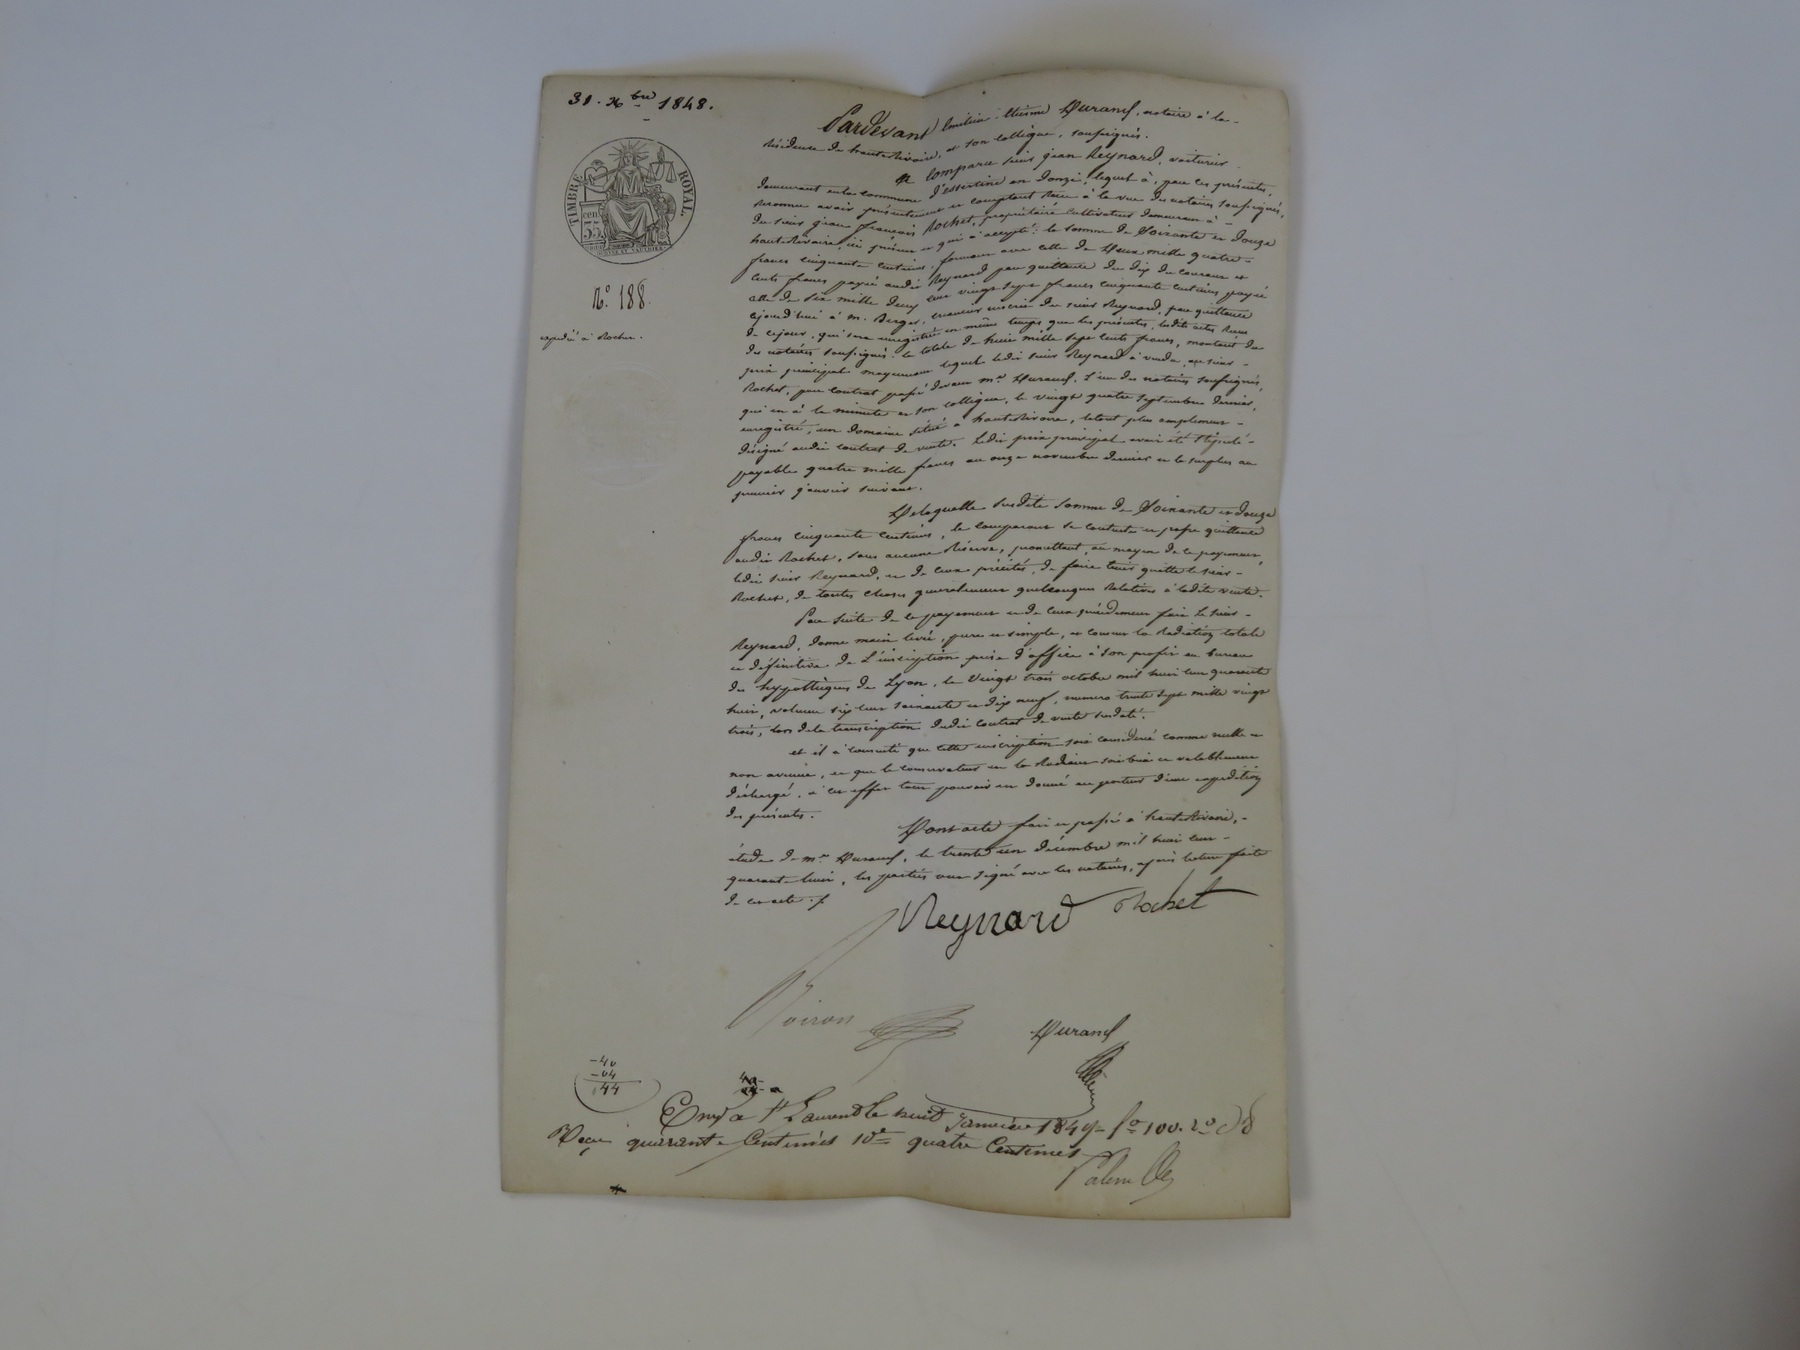 31. Xbre 1848.
TIMBRE ROYAL.
cen 35
N.° 188.
expédié à Rochet.
Pardevant Emilien Etienne Durand, notaire à la
Résidence de hauteRivoire, et son collègue, soussignés.
a Comparu sieur jean Reynard, voiturier
demeurant en la commune d'essertine en donzi, lequel à, par ces présentes,
Reconnu avoir présentement et comptant Reçu à la vue des notaires soussignés,
du sieur jean françois Rochet, propriétaire cultivateur demeurant à
hauteRivoire, ici présent et qui à accepté : la somme de Soixante et douze
francs cinquante centimes, formant avec celle de Deux mille quatre
cents francs payée audit Reynard par quittance du dix du courant et
celle de six mille deux cent vingt sept francs cinquante centimes payée
cejourd'hui à m. Berger, créancier inscrit du sieur Reynard, par quittance
de cejour, qui sera enregistrée en même temps que les présentes, lesdits actes Reçus
des notaires soussignés. le totale de huit mille sept cents francs, montant du
prix principal moyennant lequel ledit sieur Reynard à vendu, au sieur
Rochet, par contrat passé devant me. Durand, l'un des notaires soussignés,
qui en à la minute et son collègue, le vingt quatre septembre dernier,
enregistré, un domaine situé à hauteRivoire, letout plus amplement
désigné audit contrat de vente. Ledit prix principal avait été stipulé
payable quatre mille francs au onze novembre dernier et le surplus au
premier janvier suivant.
De laquelle susdite somme de Soixante et douze
francs cinquante centimes, le comparant se contente en passe quittance
audit Rochet, sans aucune Réserve, promettant, au moyen de ce payement,
ledit sieur Reynard, et de ceux précités, de faire tenir quitte le sieur
Rochet, de toutes choses généralement quelconques Relatives à ladite vente.
Par suite de ce payement et de ceux précédemment fait le sieur
Reynard, donne main levée, pure et simple, et consent la Radiation totale
et définitive de L'inscription prise d'office à son profit au bureau
des hypothèques de Lyon, le vingt trois octobre mil huit cent quarante
huit, volume six cent soixante et dix neuf, numéro trente sept mille vingt
trois, lors dela transcription dudit contrat de vente susdaté.
et il à consenti que cette inscription soit considérée comme nulle et
non avenue, et que le conservateur en la Radiant soit bien et valablement
déchargé. à cet effet tout pouvoir est donné au porteur d'une expédition
des présentes.
Dont acte fait et passé à hauteRivoire,
étude de me. Durand, le trente un décembre mil huit cent
quarante huit, les parties ont signé avec les notaires, après lecture faite
de cet acte ./.
Reynard Rochet
Voiron
Durand
-40
-04
44
Enrg a St Laurent le huit Janvier 1849 fo 100. ro
Reçu quarante Centimes 10e quatre Centimes